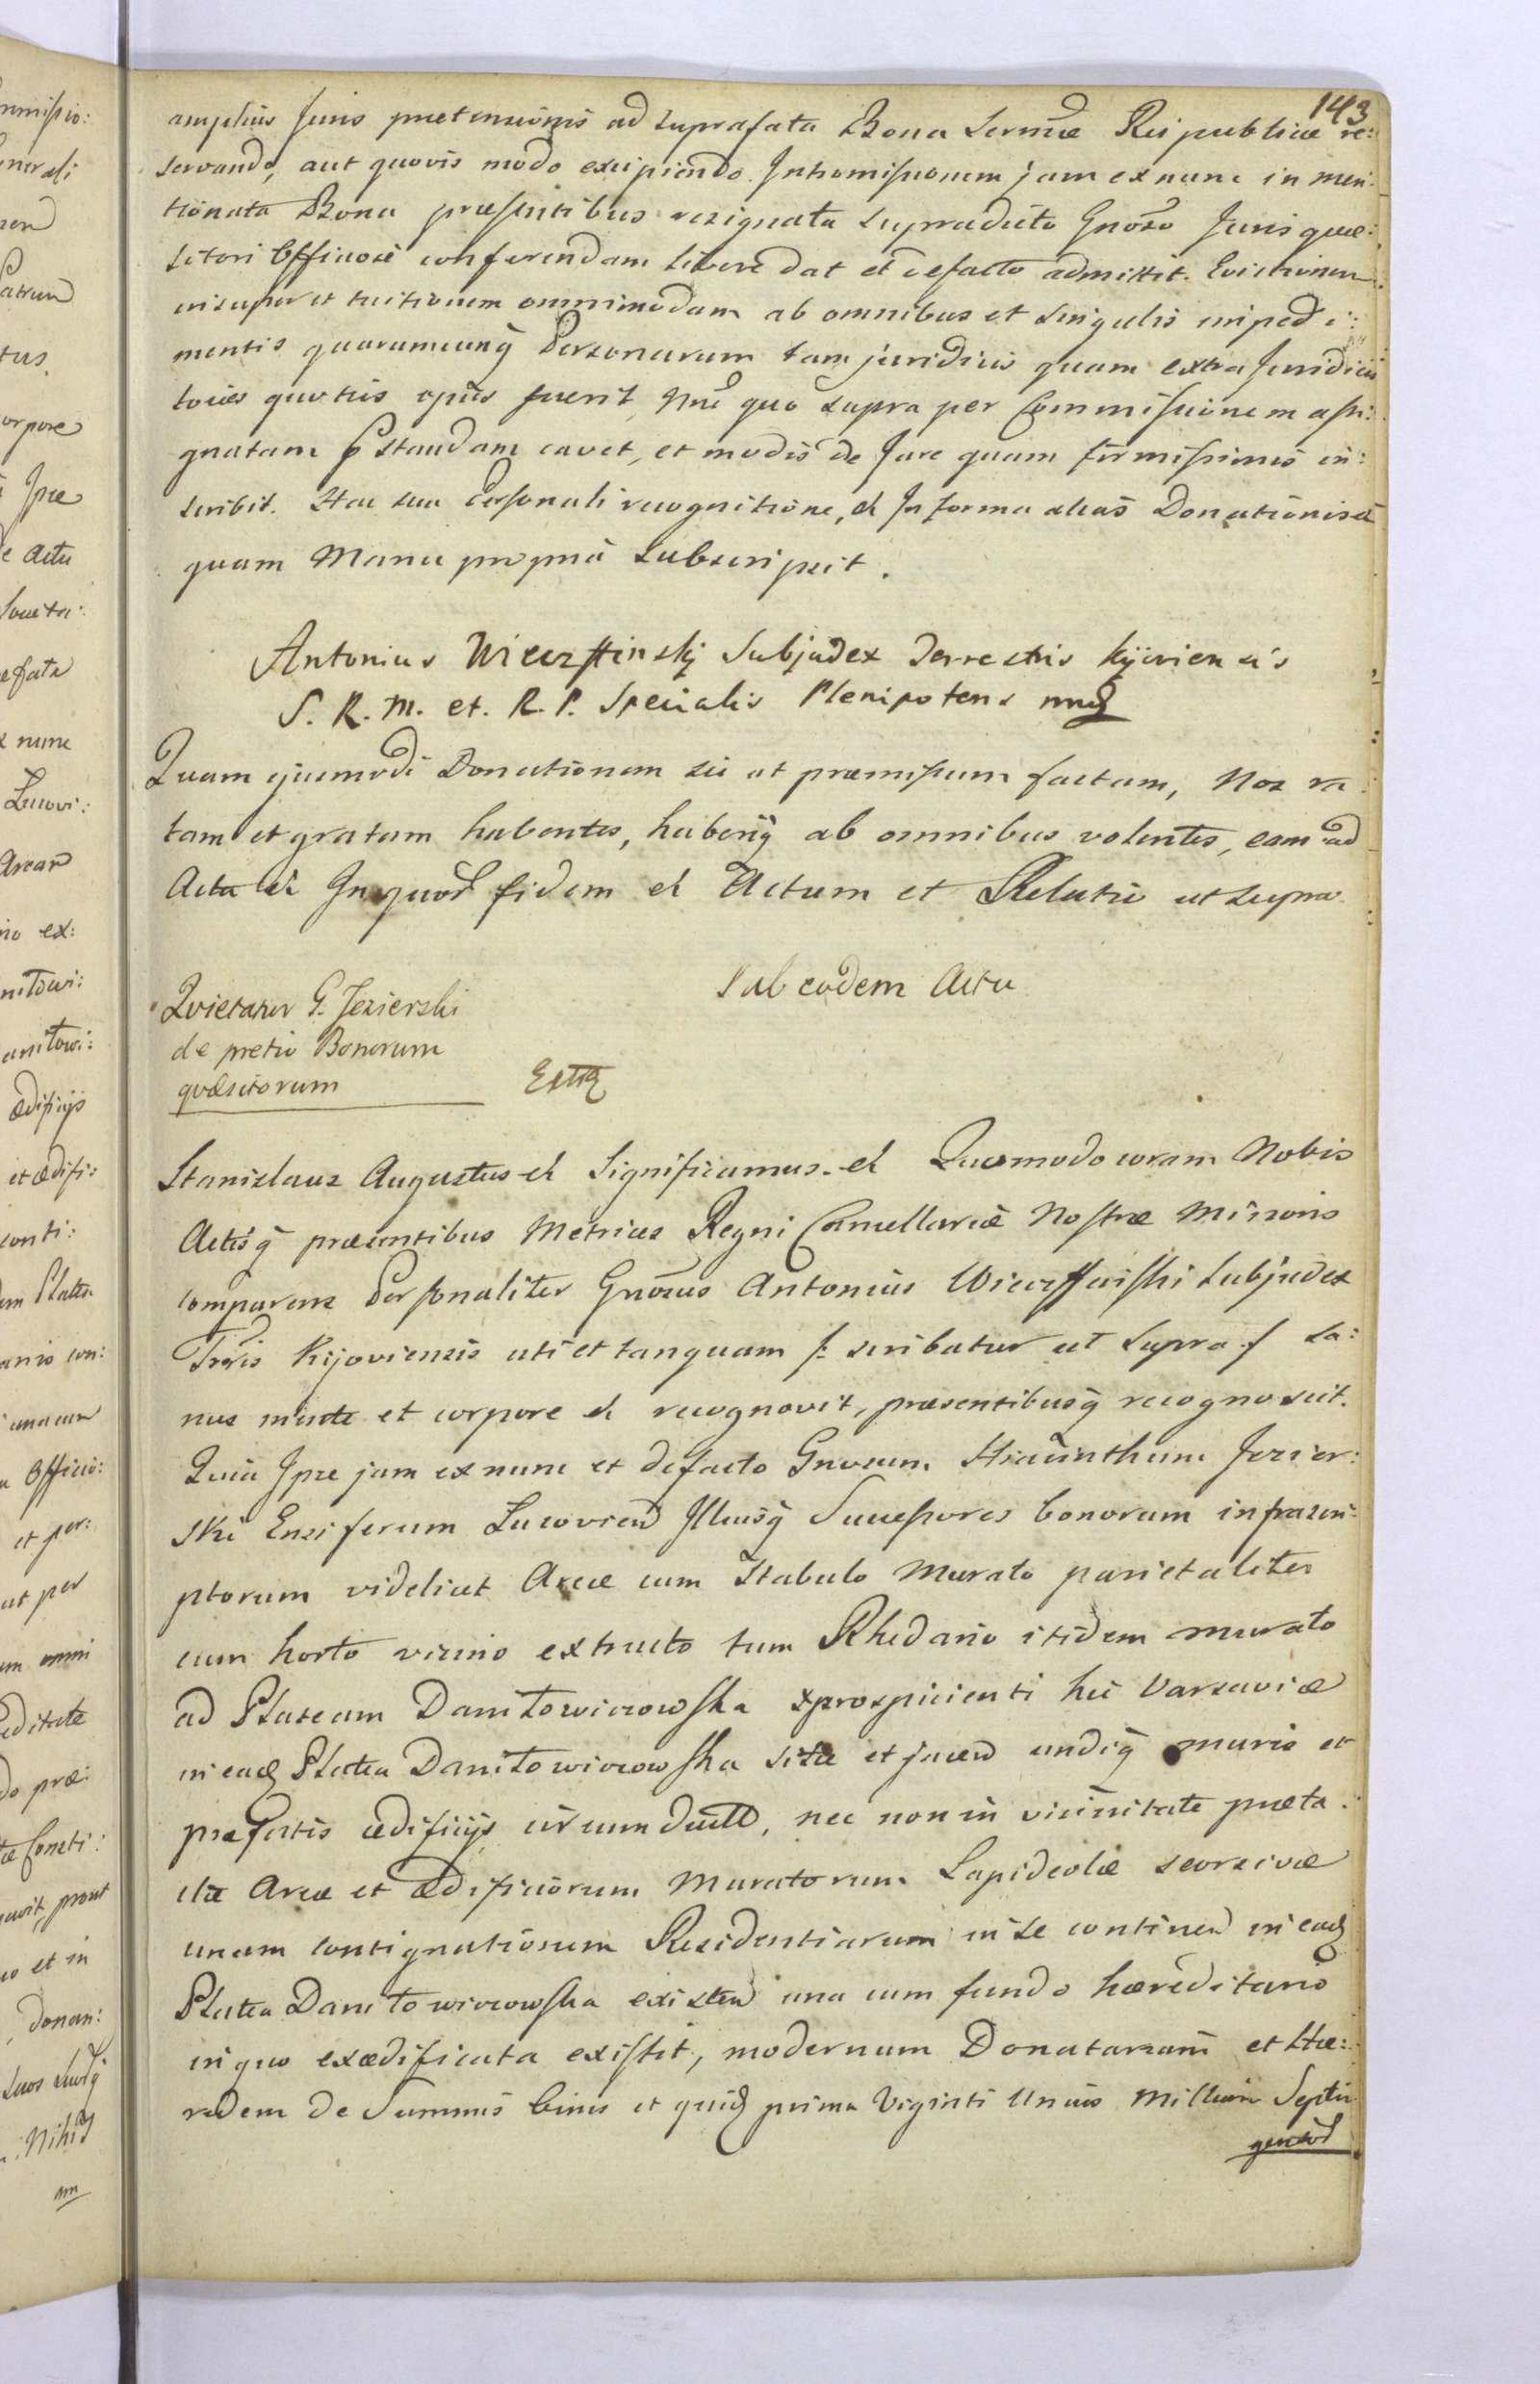 143
amplius Juris praetensionis ad suprafata Bona Sermae Reipublicae re:
servando, aut quovis modo excipiendo. Intromissionem jam ex nunc in men:
tionata Bona praesentibus resignata supradicto Gnoso Juris quae:
sitori Officiose conferendam libere dat et defacto admittit. Evictionem
insuper et tuitionem omnimodam ab omnibus et singulis impedi:
mentis quarumcunq Personarum tam juridicis quam extra Juridicis
toties quoties opus fuerit Nne quo supra per Commissionem assi:
gnatam pstandam cavet, et modis de Jure quam firmissimis in:
scribit. Hac sua Personali recognitione, et In forma alias Donationis et
quam Manu propria subscripsit.
Antonius Wieczffinskj Subjudex Terrestris Kijoviensis
S. R. M. et. R. P. Specialis Plenipotens mp
Quam ejusmodi Donationem sic ut praemissum factam, Nos ra
tam et gratam habentes, haberiq ab omnibus volentes, eam ad
Acta et In quor fidem et Actum et Relatio ut supra.
Sub eodem Actu
Quietatur G. Jezierski
de pretio Bonorum
quaesitorum
Extra
Stanislaus Augustus et Significamus et Quomodo coram Nobis
Actisq praesentibus Metrices Regni Cancellariae Nostrae Minoris
comparens Personaliter Gnosus Antonius Wieczffinski Subjudex
Trris Kijoviensis uti et tanquam /: scribatur ut supra :/ sa:
nus mente et corpore et recognovit, praesentibusq recognoscit.
Quia Ipse jam ex nunc et defacto Gnosum Hiacinthum Jezier:
ski Ensiferum Lucovien Illiusq Successores bonorum infrascri:
ptorum videlicet Areae cum Stabulo Murato parietaliter
cum horto vicino extructo tum Rhedario itidem murato
ad Plateam Daniłowiczowska prospicienti hic Varsaviae
in eadq Platea Daniłowiczowska sitae et jacen undiq muris et
praefatis aedificijs circumductae, nec non in vicinitate praeta
ctae Areae et aedificiorum Muratorum Lapideolae seorsivae
unam contignationem Residentiarum in se continen in eadq
Platea Daniłowiczowska existen una cum fundo haereditario
in quo exaedificata existit, modernum Donatarium et Hae:
redem de Summis binis et quidq prima Viginti Unius Millium Septin
gentor